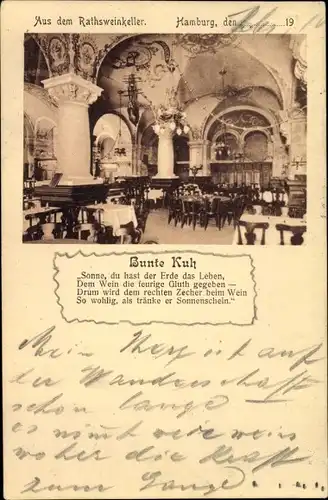 Aus dem Rathsweinkeller. Hamburg, den 19
Bunte Kuh
„Sonne, du hast der Erde das Leben,
Dem Wein die feurige Gluth gegeben —
Drum wird dem rechten Zecher beim Wein
So wohlig, als tränke er Sonnenschein.“
Mein Herz ist auf
der Wanderschaft
schon lange
es nimt
woher die Kraft
zum Gange